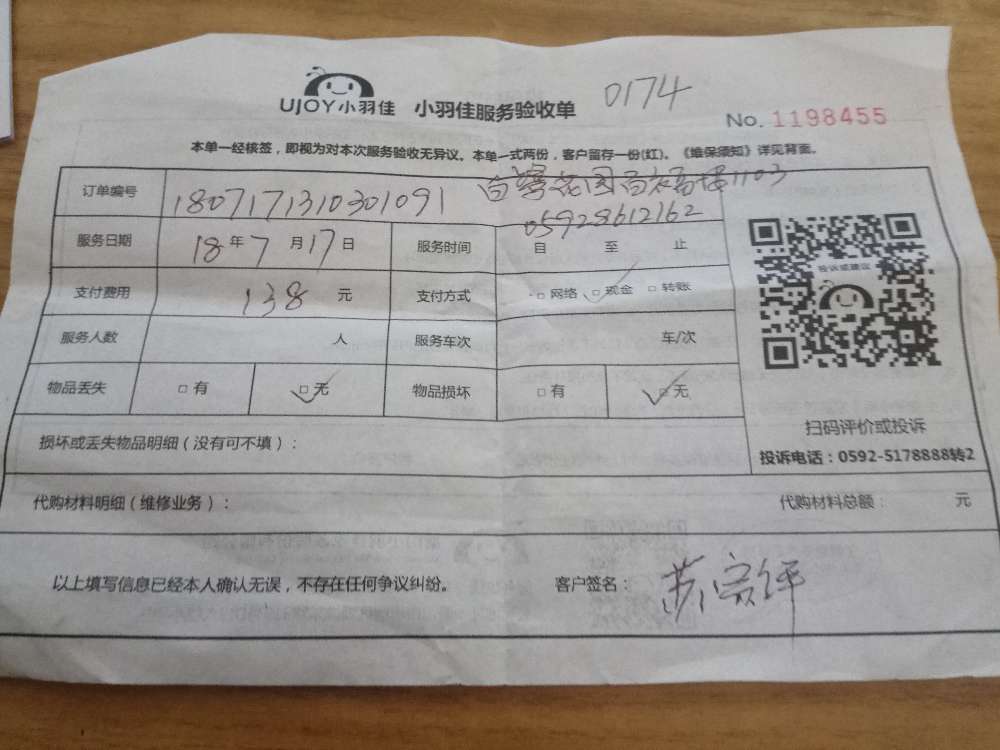 UJOY小羽佳 小羽佳服务验收单 0174
No. 1198455
本单一经核签，即视为对本次服务验收无异议。本单一式两份，客户留存一份(红)。《维保须知》详见背面。
订单编号 1807171310301091 白鹭花园 1103
05928612162
服务日期 18年7月17日 服务时间 自 至 止
支付费用 138 元 支付方式 □网络 □现金 □转账
服务人数 人 服务车次 车/次
物品丢失 □有 □无 物品损坏 □有 □无
投诉或建议
扫码评价或投诉
投诉电话：0592-5178888转2
损坏或丢失物品明细（没有可不填）：
代购材料明细（维修业务）： 代购材料总额： 元
以上填写信息已经本人确认无误，不存在任何争议纠纷。 客户签名：